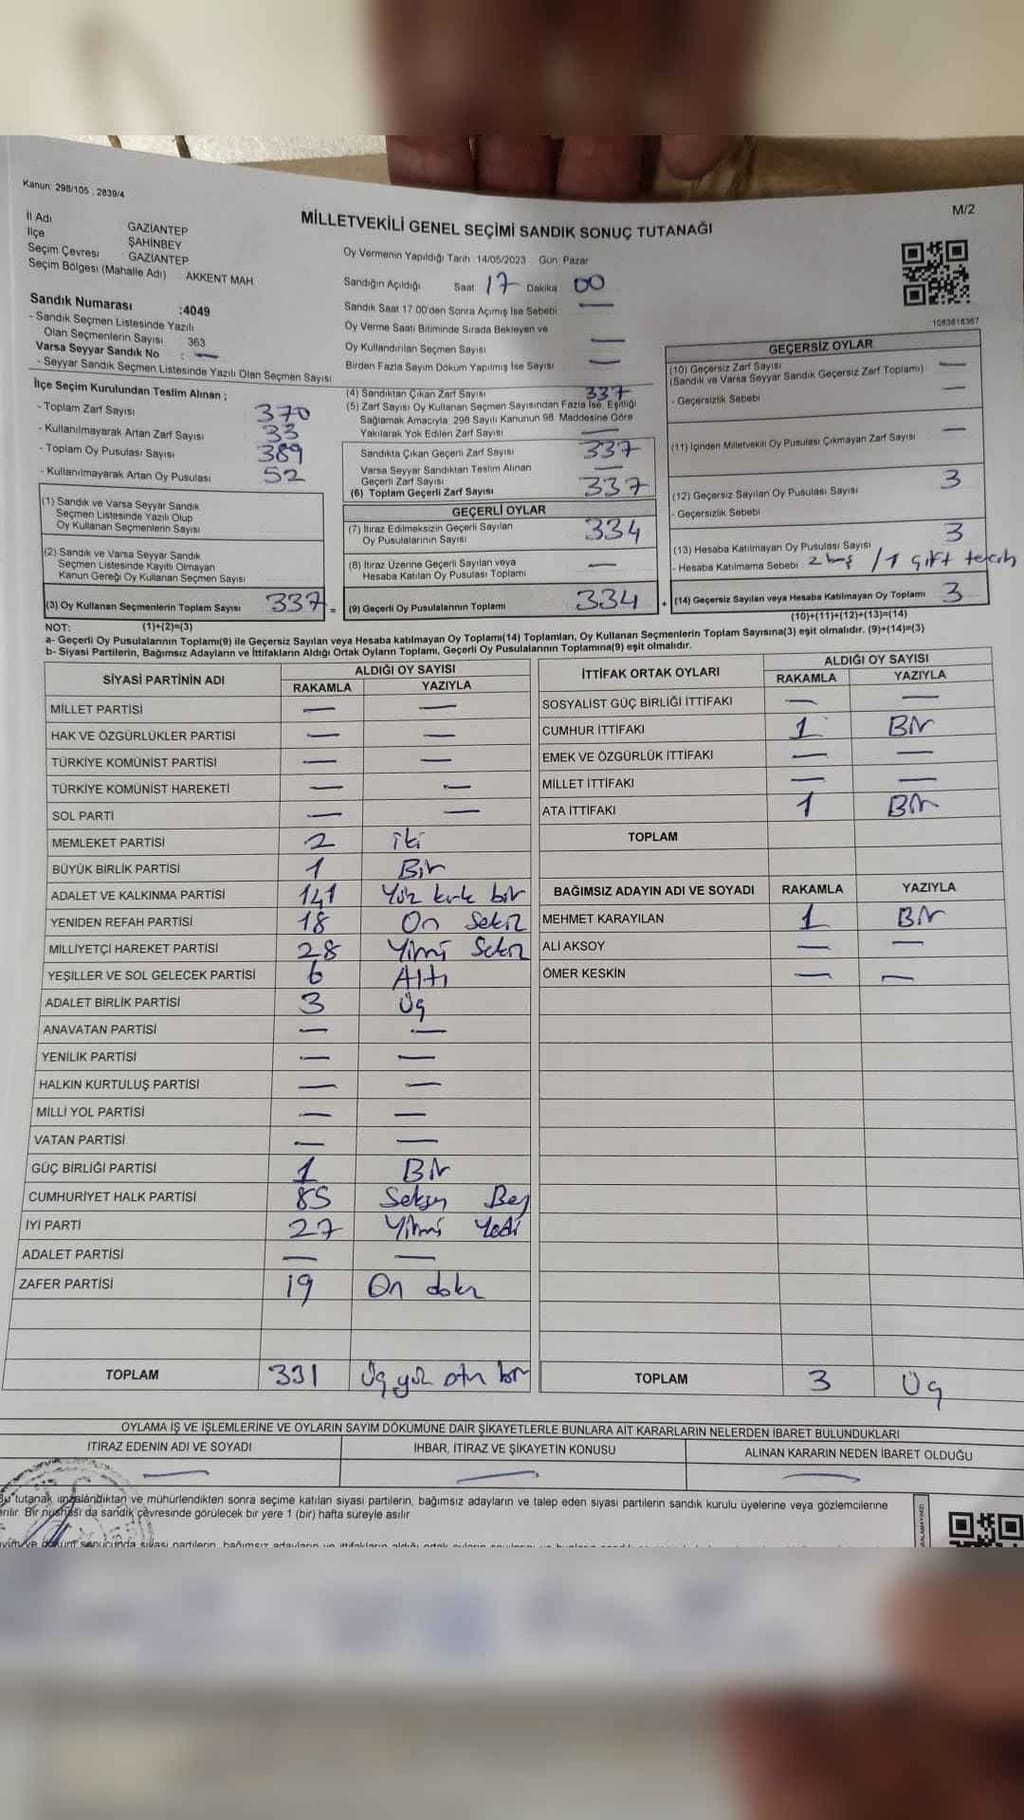 Kanun: 298/105 : 2839/4
M/2
MİLLETVEKİLİ GENEL SEÇİMİ SANDIK SONUÇ TUTANAĞI
İl Adı GAZİANTEP
İlçe ŞAHİNBEY
Seçim Çevresi GAZİANTEP
Seçim Bölgesi (Mahalle Adı) AKKENT MAH
Sandık Numarası :4049
- Sandık Seçmen Listesinde Yazılı
Olan Seçmenlerin Sayısı 363
Varsa Seyyar Sandık No : —
- Seyyar Sandık Seçmen Listesinde Yazılı Olan Seçmen Sayısı
Oy Vermenin Yapıldığı Tarih : 14/05/2023 Gün: Pazar
Sandığın Açıldığı Saat 17 Dakika 00
Sandık Saat 17.00'den Sonra Açımış İse Sebebi —
Oy Verme Saati Bitiminde Sırada Bekleyen ve
Oy Kullandırılan Seçmen Sayısı —
Birden Fazla Sayım Döküm Yapılmış İse Sayısı —
1083618367
İlçe Seçim Kurulundan Teslim Alınan ;
- Toplam Zarf Sayısı 370
- Kullanılmayarak Artan Zarf Sayısı 33
- Toplam Oy Pusulası Sayısı 389
- Kullanılmayarak Artan Oy Pusulası 52
(1) Sandık ve Varsa Seyyar Sandık
Seçmen Listesinde Yazılı Olup
Oy Kullanan Seçmenlerin Sayısı
(2) Sandık ve Varsa Seyyar Sandık
Seçmen Listesinde Kayıtlı Olmayan
Kanun Gereği Oy Kullanan Seçmen Sayısı
(3) Oy Kullanan Seçmenlerin Toplam Sayısı 337 =
(1)+(2)=(3)
(4) Sandıktan Çıkan Zarf Sayısı 337
(5) Zarf Sayısı Oy Kullanan Seçmen Sayısından Fazla İse, Eşitliği
Sağlamak Amacıyla, 298 Sayılı Kanunun 98. Maddesine Göre
Yakılarak Yok Edilen Zarf Sayısı —
Sandıkta Çıkan Geçerli Zarf Sayısı 337
Varsa Seyyar Sandıktan Teslim Alınan
Geçerli Zarf Sayısı —
(6) Toplam Geçerli Zarf Sayısı 337
GEÇERLİ OYLAR
(7) İtiraz Edilmeksizin Geçerli Sayılan
Oy Pusulalarının Sayısı 334
(8) İtiraz Üzerine Geçerli Sayılan veya
Hesaba Katılan Oy Pusulası Toplamı —
(9) Geçerli Oy Pusulalarının Toplamı 334 +
GEÇERSİZ OYLAR
(10) Geçersiz Zarf Sayısı —
(Sandık ve Varsa Seyyar Sandık Geçersiz Zarf Toplamı)
- Geçersizlik Sebebi —
(11) İçinden Milletvekili Oy Pusulası Çıkmayan Zarf Sayısı —
(12) Geçersiz Sayılan Oy Pusulası Sayısı 3
- Geçersizlik Sebebi
(13) Hesaba Katılmayan Oy Pusulası Sayısı 3
- Hesaba Katılmama Sebebi 2 boş / 1 çift tercih
(14) Geçersiz Sayılan veya Hesaba Katılmayan Oy Toplamı 3
(10)+(11)+(12)+(13)=(14)
NOT:
a- Geçerli Oy Pusulalarının Toplamı(9) ile Geçersiz Sayılan veya Hesaba katılmayan Oy Toplamı(14) Toplamları, Oy Kullanan Seçmenlerin Toplam Sayısına(3) eşit olmalıdır. (9)+(14)=(3)
b- Siyasi Partilerin, Bağımsız Adayların ve İttifakların Aldığı Ortak Oyların Toplamı, Geçerli Oy Pusulalarının Toplamına(9) eşit olmalıdır.
SİYASİ PARTİNİN ADI ALDIĞI OY SAYISI
RAKAMLA YAZIYLA
MİLLET PARTİSİ — —
HAK VE ÖZGÜRLÜKLER PARTİSİ — —
TÜRKİYE KOMÜNİST PARTİSİ — —
TÜRKİYE KOMÜNİST HAREKETİ — —
SOL PARTİ — —
MEMLEKET PARTİSİ 2 iki
BÜYÜK BİRLİK PARTİSİ 1 Bir
ADALET VE KALKINMA PARTİSİ 141 Yüz kırk bir
YENİDEN REFAH PARTİSİ 18 On Sekiz
MİLLİYETÇİ HAREKET PARTİSİ 28 Yirmi Sekiz
YEŞİLLER VE SOL GELECEK PARTİSİ 6 Altı
ADALET BİRLİK PARTİSİ 3 Üç
ANAVATAN PARTİSİ — —
YENİLİK PARTİSİ — —
HALKIN KURTULUŞ PARTİSİ — —
MİLLİ YOL PARTİSİ — —
VATAN PARTİSİ — —
GÜÇ BİRLİĞİ PARTİSİ 1 Bir
CUMHURİYET HALK PARTİSİ 85 Seksen Beş
İYİ PARTİ 27 Yirmi Yedi
ADALET PARTİSİ — —
ZAFER PARTİSİ 19 On dokuz
TOPLAM 331 Üç yüz otuz bir
İTTİFAK ORTAK OYLARI ALDIĞI OY SAYISI
RAKAMLA YAZIYLA
SOSYALİST GÜÇ BİRLİĞİ İTTİFAKI — —
CUMHUR İTTİFAKI 1 Bir
EMEK VE ÖZGÜRLÜK İTTİFAKI — —
MİLLET İTTİFAKI — —
ATA İTTİFAKI 1 Bir
TOPLAM
BAĞIMSIZ ADAYIN ADI VE SOYADI RAKAMLA YAZIYLA
MEHMET KARAYILAN 1 Bir
ALİ AKSOY — —
ÖMER KESKİN — —
TOPLAM 3 Üç
OYLAMA İŞ VE İŞLEMLERİNE VE OYLARIN SAYIM DÖKÜMÜNE DAİR ŞİKAYETLERLE BUNLARA AİT KARARLARIN NELERDEN İBARET BULUNDUKLARI
İTİRAZ EDENİN ADI VE SOYADI İHBAR, İTİRAZ VE ŞİKAYETİN KONUSU ALINAN KARARIN NEDEN İBARET OLDUĞU
— — —
Bu tutanak imzalandıktan ve mühürlendikten sonra seçime katılan siyasi partilerin, bağımsız adayların ve talep eden siyasi partilerin sandık kurulu üyelerine veya gözlemcilerine
verilir. Bir nüshası da sandık çevresinde görülecek bir yere 1 (bir) hafta süreyle asılır